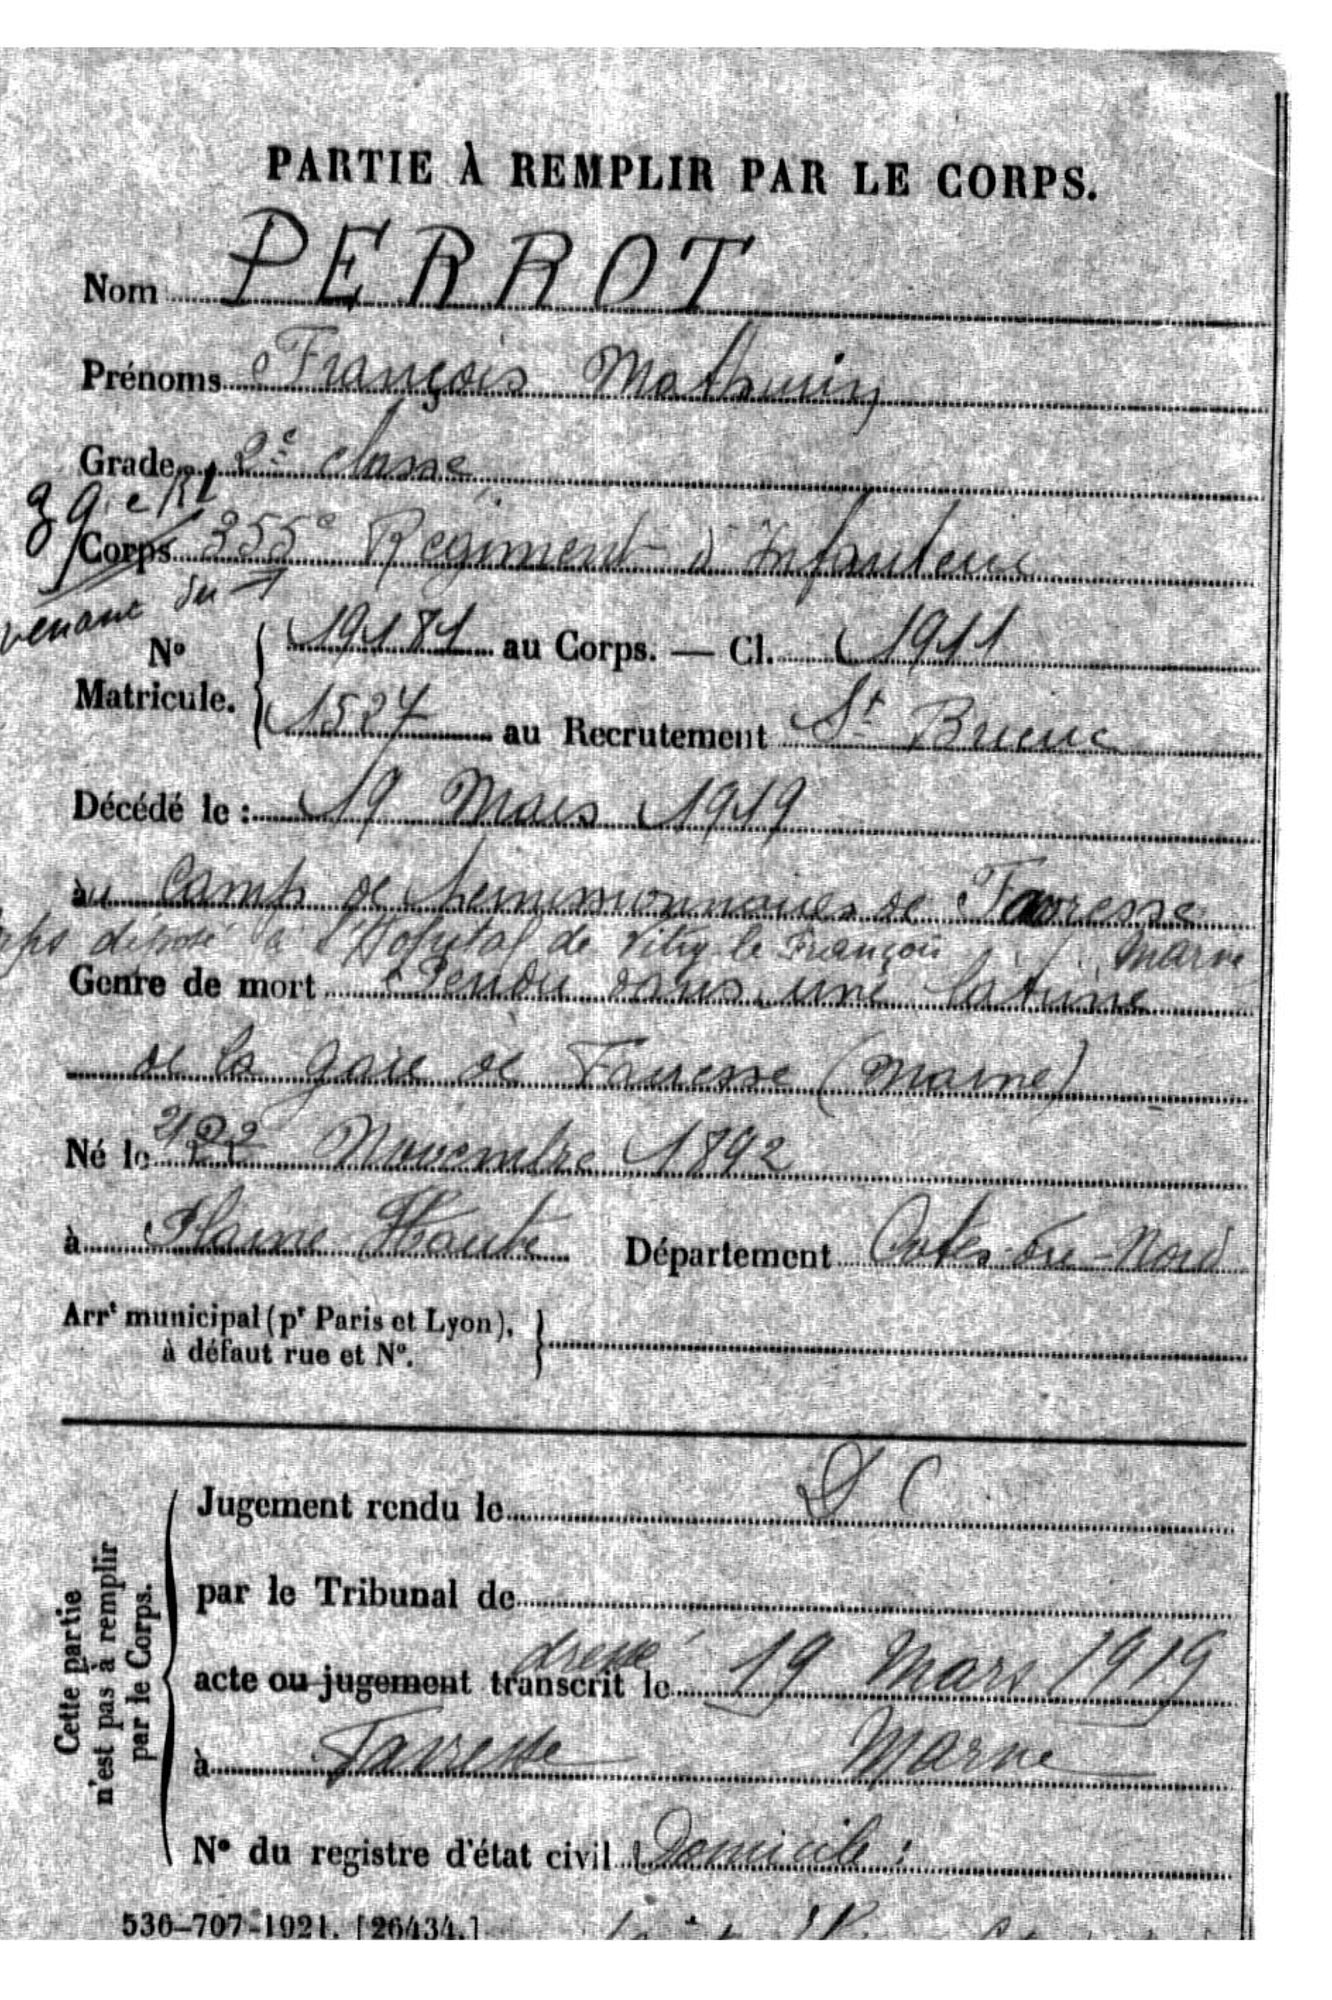 PARTIE À REMPLIR PAR LE CORPS.
Nom PERROT
Prénoms François Mathurin
Grade 2e classe
Corps 355e Régiment d'Infanterie
venant du
No Matricule. 19181 au Corps. — Cl. 1911
1527 au Recrutement St Brieuc
Décédé le : 19 Mars 1919
au Camp de de Favresse
déposé à l'Hopital de Vitry le François Marne
Genre de mort Pendu dans une latrine
de la gare de Favresse (Marne)
Né le 21 22 Novembre 1892
à Plaine Haute Département Cotes-du-Nord
Arrt municipal (pr Paris et Lyon),
à défaut rue et No.
Cette partie
n'est pas à remplir
par le Corps.
Jugement rendu le D C
par le Tribunal de
dressé
acte ou jugement transcrit le 19 Mars 1919
à Favresse Marne
No du registre d'état civil Domicile :
536-707-1921. [26434.]